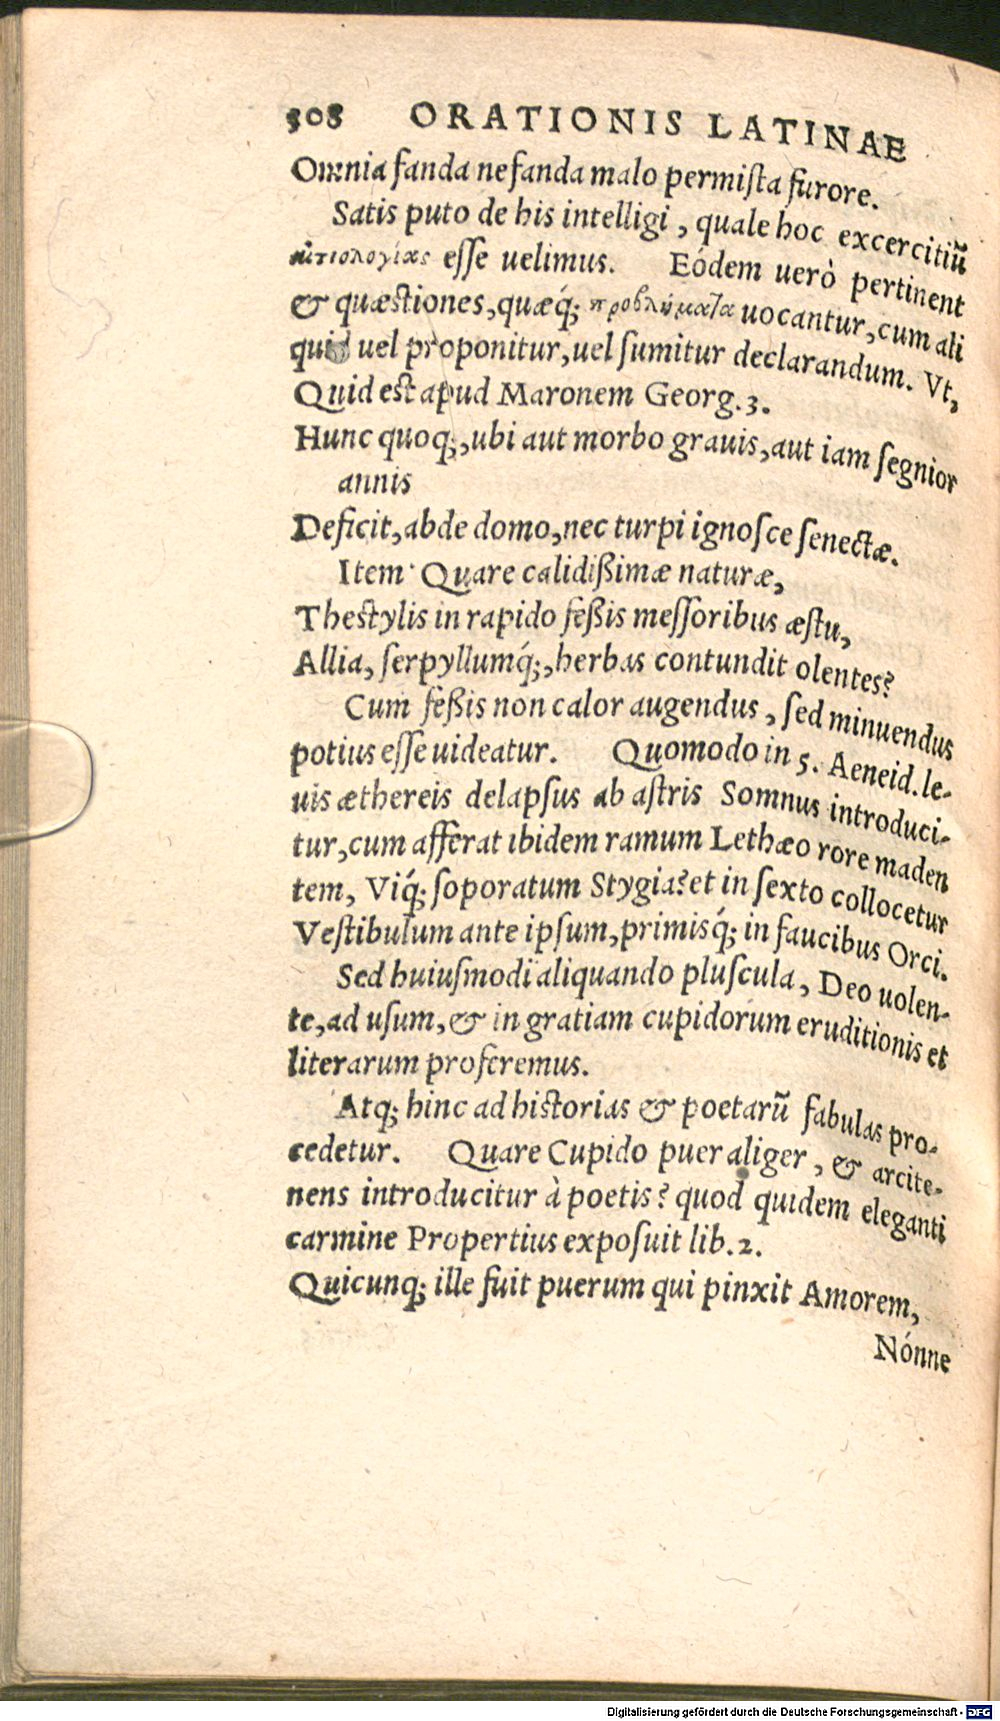 308 ORATIONIS LATINAE
Omnia fanda nefanda malo permiſta furore.
Satis puto de his intelligi, quale hoc excercitiũ
αἰτιολογίας eſſe uelimus. Eódem uerò pertinent
& quæstiones, quæq́; προβλήματα uocantur, cum ali
quid uel proponitur, uel ſumitur declarandum. Vt,
Quid est apud Maronem Georg. 3.
Hunc quoq;, ubi aut morbo grauis, aut iam ſegnior
annis
Deficit, abde domo, nec turpi ignoſce ſenectæ.
Item Quare calidißimæ naturæ,
Thestylis in rapido feßis meſſoribus æſtu,
Allia, ſerpyllumq́;, herbas contundit olentes?
Cum feßis non calor augendus, ſed minuendus
potius eſſe uideatur. Quomodo in 5. Aeneid. le-
uis æthereis delapſus ab aſtris Somnus introduci-
tur, cum afferat ibidem ramum Lethæo rore maden
tem, Viq́; ſoporatum Stygia? et in ſexto collocetur
Veſtibulum ante ipſum, primisq́; in faucibus Orci.
Sed huiuſmodi aliquando pluſcula, Deo uolen-
te, ad uſum, & in gratiam cupidorum eruditionis et
literarum proferemus.
Atq; hinc ad historias & poetarũ fabulas pro-
cedetur. Quare Cupido puer aliger, & arcite-
nens introducitur à poetis? quod quidem eleganti
carmine Propertius expoſuit lib. 2.
Quicunq; ille fuit puerum qui pinxit Amorem,
Nónne
Digitalisierung gefördert durch die Deutsche Forschungsgemeinschaft - DFG